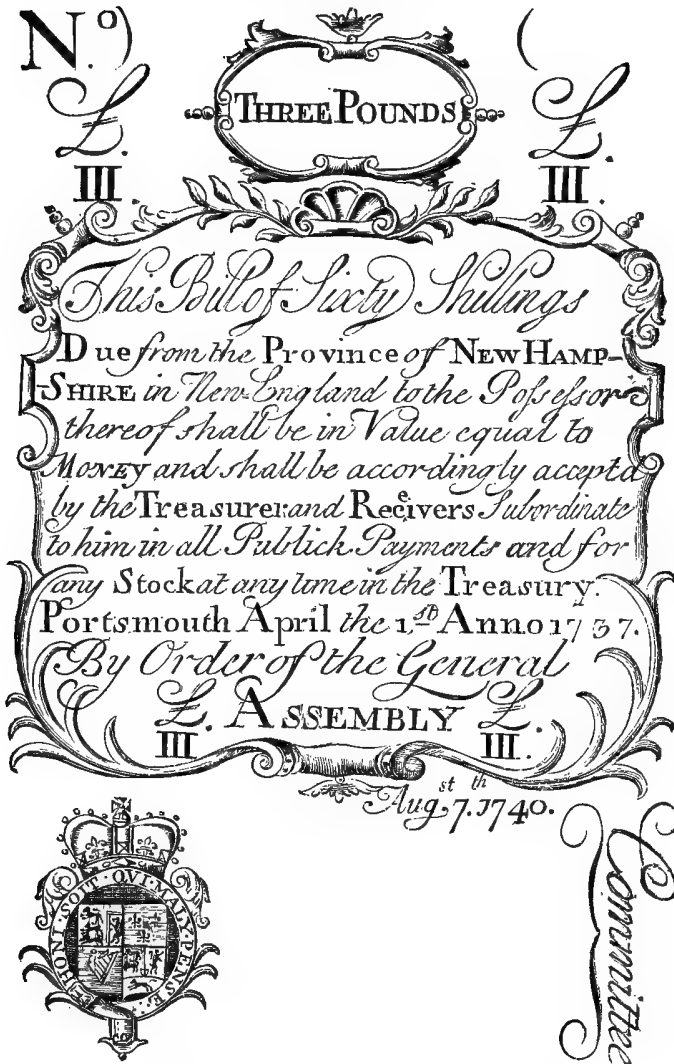 N.º) (
£. THREE POUNDS £.
III. III.
This Bill of Sixty Shillings
Due from the Province of NEW HAMP-
-SHIRE in New-England to the Possessor
thereof shall be in Value equal to
MONEY and shall be accordingly accepted
by the Treasurer and Receivers Subordinate
to him in all Publick Payments and for
any Stock at any time in the Treasury.
Portsmouth April the 1,st Anno 1737.
By Order of the General
£. ASSEMBLY £.
III III.
Augst. 7.th 1740.
HONI · SOIT · QVI · MALY · PENSE
Committee